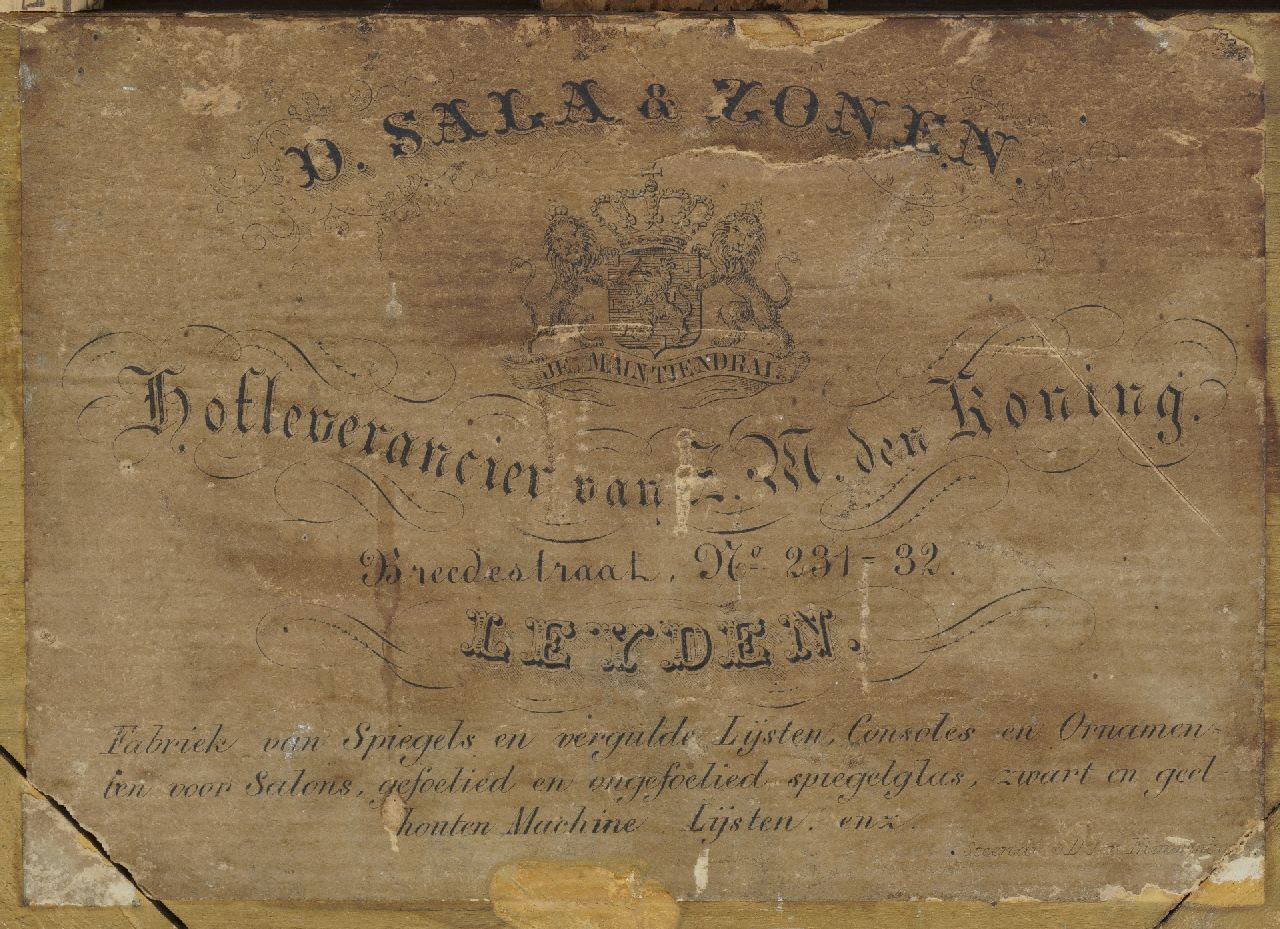 D. SALA & ZONEN.
JE MAINTIENDRAI.
Hofleverancier van Z. M. den Koning.
Breedestraat, No. 231-32.
LEYDEN.
Fabriek van Spiegels en vergulde Lijsten, Consoles en Ornamen-
ten voor Salons, gefoelied en ongefoelied spiegelglas, zwart en geel-
houten Machine Lijsten. enz.